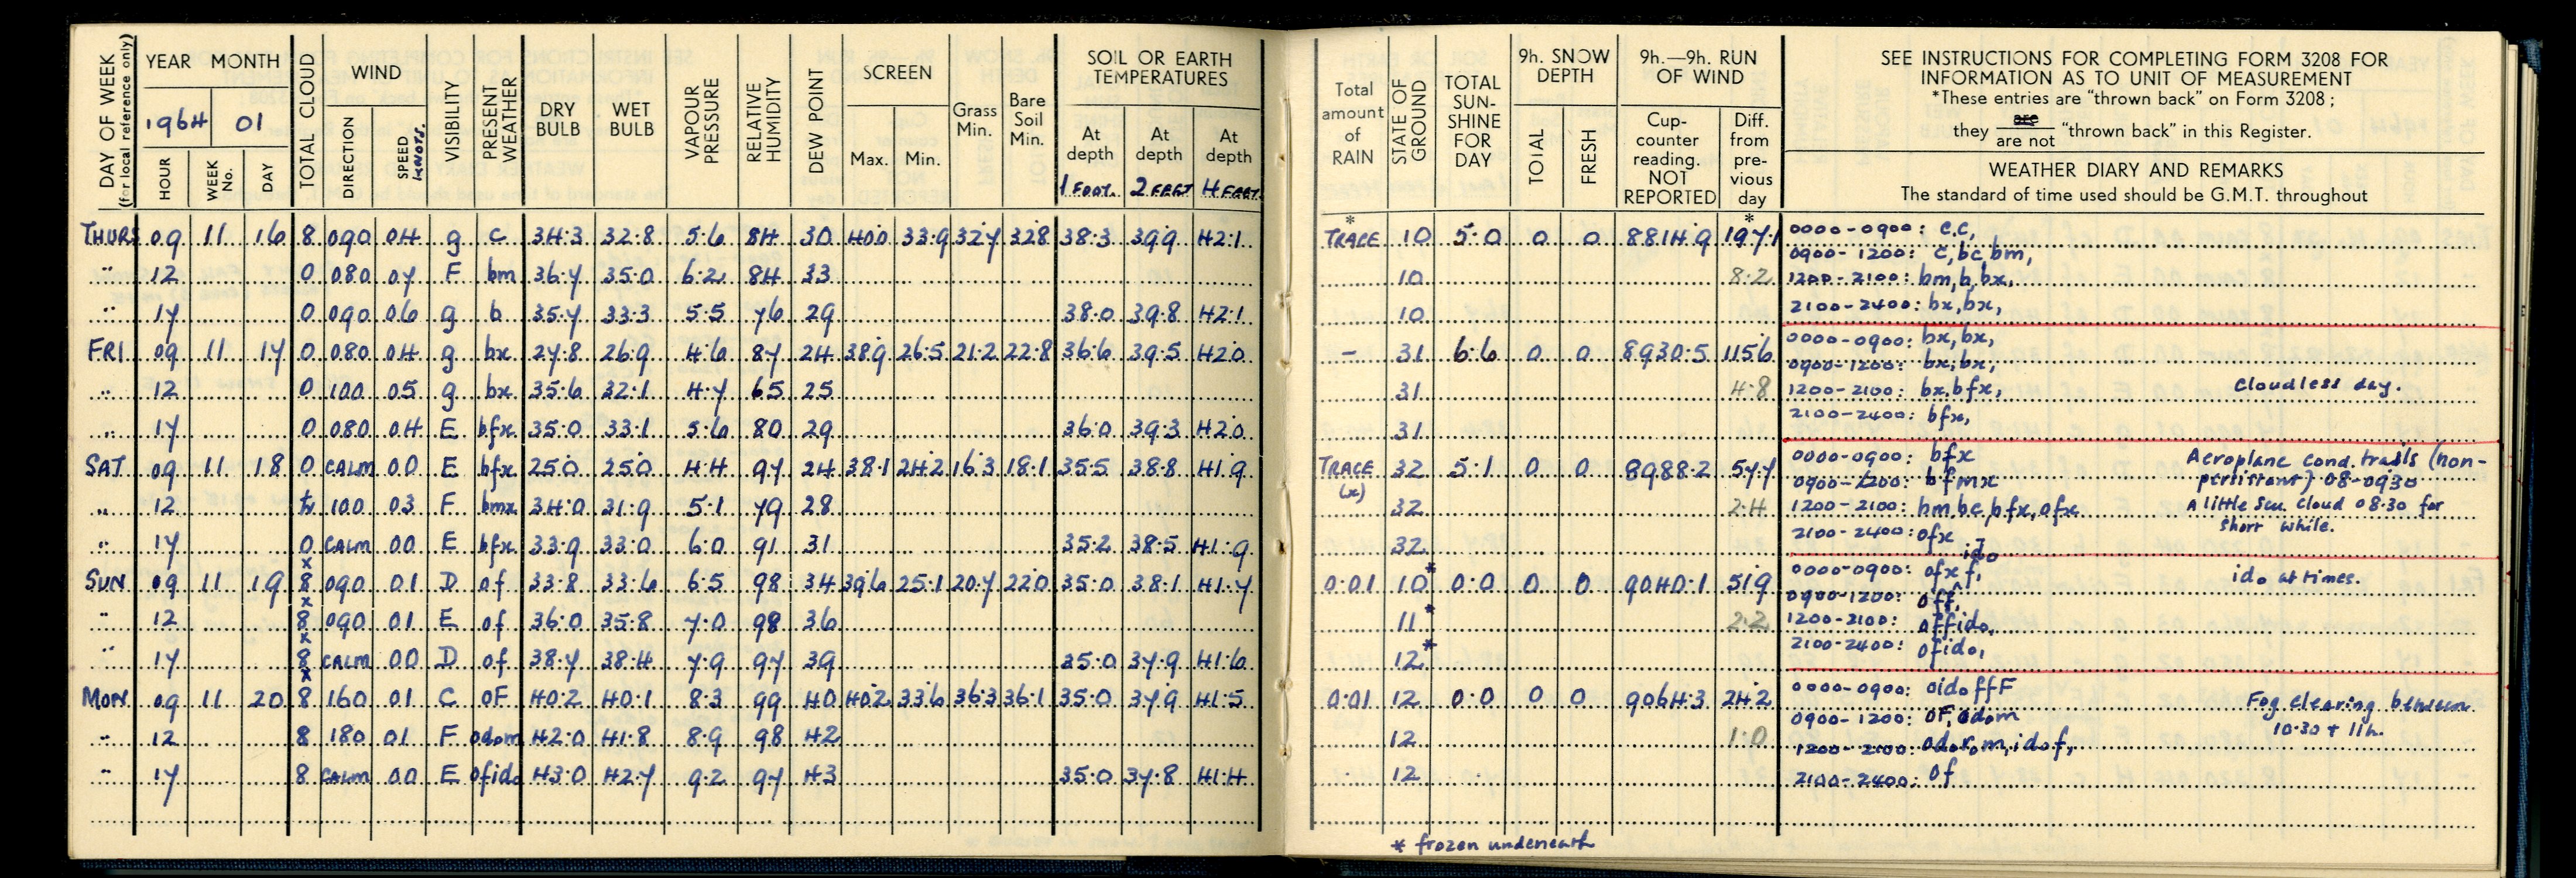 DAY OF WEEK (for local reference only) YEAR MONTH TOTAL CLOUD WIND VISIBILITY PRESENT WEATHER DRY BULB WET BULB VAPOUR PRESSURE RELATIVE HUMIDITY DEW POINT SCREEN Grass Min. Bare Soil Min. SOIL OR EARTH TEMPERATURES
1964 01
HOUR WEEK No. DAY DIRECTION SPEED KNOTS. Max. Min. At depth 1 FOOT. At depth 2 FEET At depth 4 FEET.
THURS 09 11 16 8 090 04 g c 34.3 32.8 5.6 84 30 40.0 33.9 32.7 32.8 38.3 39.9 42.1
" 12 0 080 07 F bm 36.7 35.0 6.2 84 33
" 17 0 090 06 g b 35.7 33.3 5.5 76 29 38.0 39.8 42.1
FRI 09 11 17 0 080 04 g bx 27.8 26.9 4.6 87 24 38.9 26.5 21.2 22.8 36.6 39.5 42.0
" 12 0 100 05 g bx 35.6 32.1 4.7 65 25
" 17 0 080 04 E bfx 35.0 33.1 5.6 80 29 36.0 39.3 42.0
SAT 09 11 18 0 CALM 00 E bfx 25.0 25.0 4.4 97 24 38.1 24.2 16.3 18.1 35.5 38.8 41.9
" 12 tr 100 03 F bmx 34.0 31.9 5.1 79 28
" 17 0 CALM 00 E bfx 33.9 33.0 6.0 91 31 35.2 38.5 41.9
x
SUN 09 11 19 8 090 01 D of 33.8 33.6 6.5 98 34 39.6 25.1 20.7 22.0 35.0 38.1 41.7
x
" 12 8 090 01 E of 36.0 35.8 7.0 98 36
x
" 17 8 CALM 00 D of 38.7 38.4 7.9 97 39 35.0 37.9 41.6
x
MON 09 11 20 8 160 01 C oF 40.2 40.1 8.3 99 40 40.2 33.6 36.3 36.1 35.0 37.9 41.5
" 12 8 180 01 F odom 42.0 41.8 8.9 98 42
" 17 8 CALM 00 E ofido 43.0 42.7 9.2 97 43 35.0 37.8 41.4
Total amount of RAIN STATE OF GROUND TOTAL SUN-SHINE FOR DAY 9h. SNOW DEPTH 9h.—9h. RUN OF WIND
TOTAL FRESH Cup-counter reading. NOT REPORTED Diff. from pre-vious day
SEE INSTRUCTIONS FOR COMPLETING FORM 3208 FOR
INFORMATION AS TO UNIT OF MEASUREMENT
*These entries are "thrown back" on Form 3208 ;
they are / are not "thrown back" in this Register.
WEATHER DIARY AND REMARKS
The standard of time used should be G.M.T. throughout
* *
TRACE 10 5.0 0 0 8814.9 197.1 0000-0900: c,c,
0900-1200: c,bc,bm,
10 8.2 1200-2100: bm,b,bx,
10 2100-2400: bx,bx,
- 31 6.6 0 0 8930.5 115.6 0000-0900: bx,bx,
0900-1200: bx,bx,
31 4.8 1200-2100: bx,bfx, Cloudless day.
31 2100-2400: bfx,
TRACE (x) 32 5.1 0 0 8988.2 57.7 0000-0900: bfx Aeroplane cond. trails (non-
0900-1200: bfmx persistent) 08-0930
32 2.4 1200-2100: bm,bc,bfx,ofx A little Scu. cloud 08.30 for
32 2100-2400: ofx short while.
ido
0.01 10* 0.0 0 0 9040.1 51.9 0000-0900: ofxf, ido at times.
0900-1200: off,
11* 2.2 1200-2100: offido,
12* 2100-2400: ofido,
0.01 12 0.0 0 0 9064.3 24.2 0000-0900: oidoffF Fog clearing between
0900-1200: oF,odom 10.30 + 11h.
12 1.0 1200-2100: odorom,idof,
12 2100-2400: of
* frozen underneath